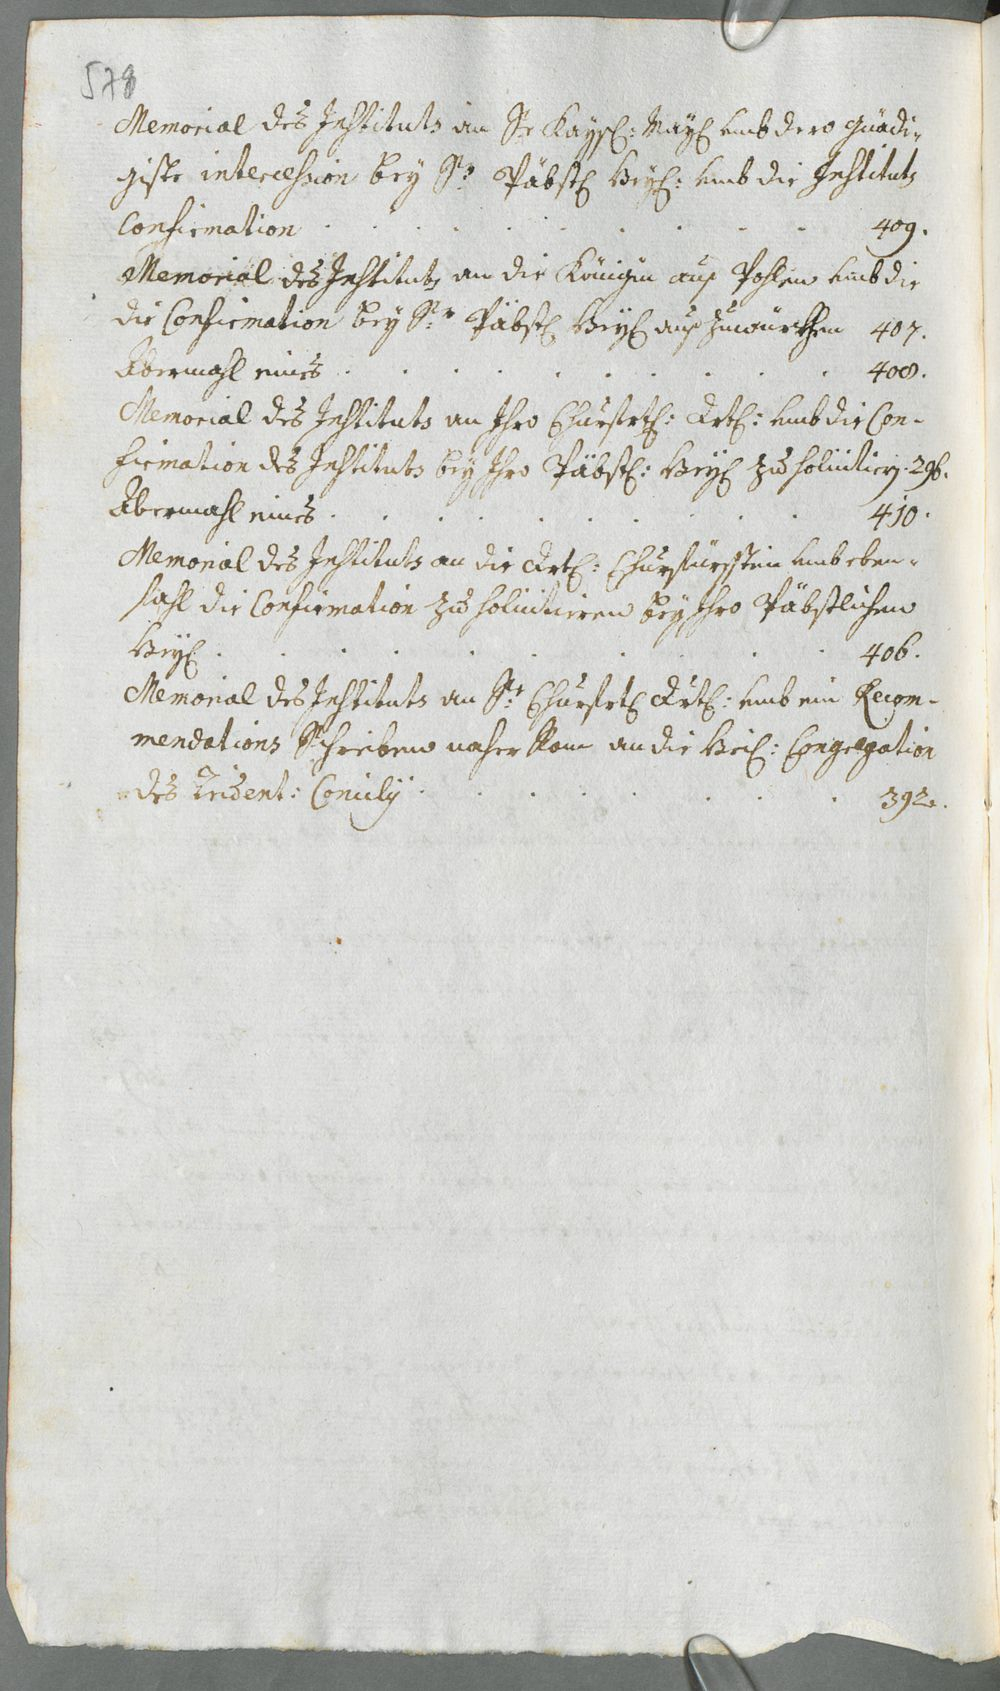 578
Memorial des Instituts an Sr Kaysl: Mayl umb dero gnädi-
giste intercession bey Sr Päbstl Heyl: umb die Instituts
Confirmation . . . . . . . . . 409.
Memorial des Instituts an die Königin auß Pohlen umb die
die Confirmation bey Sr Päbstl Heyl auß zuwürkhen 407.
Abermahl eines . . . . . . . . . 408.
Memorial des Instituts an Ihro Churfrtl: Drtl: umb die Con-
firmation des Instituts bey Ihro Päbstl: Heyl zu sollicitiern. 296.
Abermahl eines . . . . . . . . . 410.
Memorial des Instituts an die Drtl: Churfürstin umb eben-
fahl die Confirmation zu sollicitieren bey Ihro Päbstlichen
Heyl . . . . . . . . . 406.
Memorial des Instituts an Sr Churfrtl Drtl: umb ein Recom-
mendations Schreiben naher Rom an die Heil: Congregation
des Trident: Concilij . . . . . . . . 392.